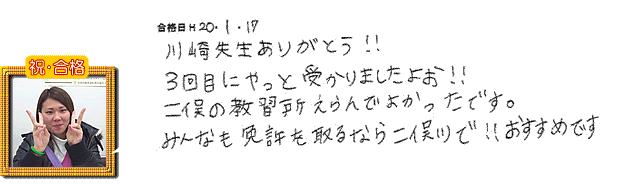 合格日 H 20・1・17
川崎先生ありがとう!!
3回目にやっと受かりましたよお!!
二俣の教習所えらんでよかったです。
みんなも免許を取るなら二俣川で!!おすすめです
祝・合格